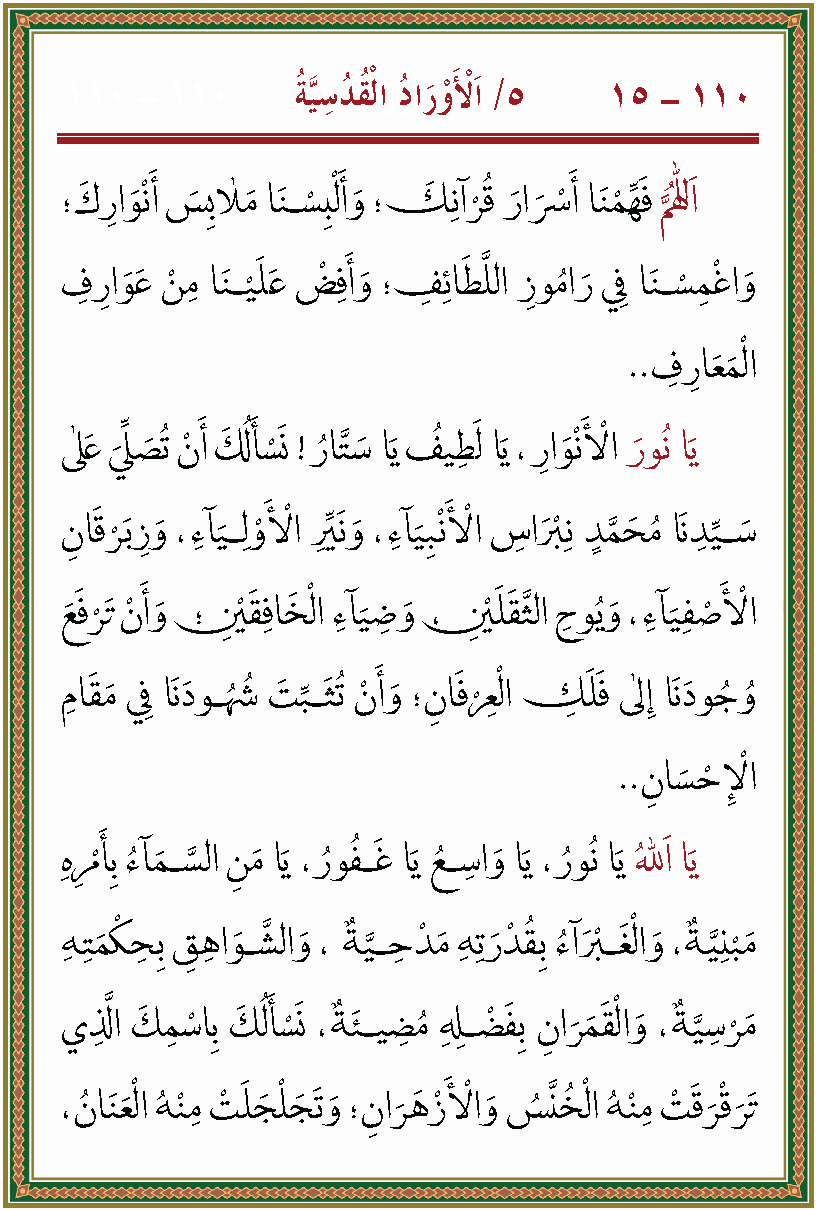 ١١٠ – ١٥ ٥/ اَلْأَوْرَادُ الْقُدُسِيَّةُ
اَللّٰهُمَّ فَهِّمْنَا أَسْرَارَ قُرْآنِكَ؛ وَأَلْبِسْنَا مَلَابِسَ أَنْوَارِكَ؛
وَاغْمِسْنَا فِي رَامُوزِ اللَّطَائِفِ؛ وَأَفِضْ عَلَيْنَا مِنْ عَوَارِفِ
الْمَعَارِفِ..
يَا نُورَ الْأَنْوَارِ، يَا لَطِيفُ يَا سَتَّارُ! نَسْأَلُكَ أَنْ تُصَلِّيَ عَلٰى
سَيِّدِنَا مُحَمَّدٍ نِبْرَاسِ الْأَنْبِيَآءِ، وَنَيِّرِ الْأَوْلِيَآءِ، وَزِبَرْقَانِ
الْأَصْفِيَآءِ، وَيُوحِ الثَّقَلَيْنِ، وَضِيَآءِ الْخَافِقَيْنِ؛ وَأَنْ تَرْفَعَ
وُجُودَنَا إِلٰى فَلَكِ الْعِرْفَانِ؛ وَأَنْ تُثَبِّتَ شُهُودَنَا فِي مَقَامِ
الْإِحْسَانِ..
يَا اَللّٰهُ يَا نُورُ، يَا وَاسِعُ يَا غَفُورُ، يَا مَنِ السَّمَآءُ بِأَمْرِهِ
مَبْنِيَّةٌ، وَالْغَبْرَآءُ بِقُدْرَتِهِ مَدْحِيَّةٌ، وَالشَّوَاهِقِ بِحِكْمَتِهِ
مَرْسِيَّةٌ، وَالْقَمَرَانِ بِفَضْلِهِ مُضِيئَةٌ، نَسْأَلُكَ بِاسْمِكَ الَّذِي
تَرَقْرَقَتْ مِنْهُ الْخُنَّسُ وَالْأَزْهَرَانِ؛ وَتَجَلْجَلَتْ مِنْهُ الْعَنَانُ،